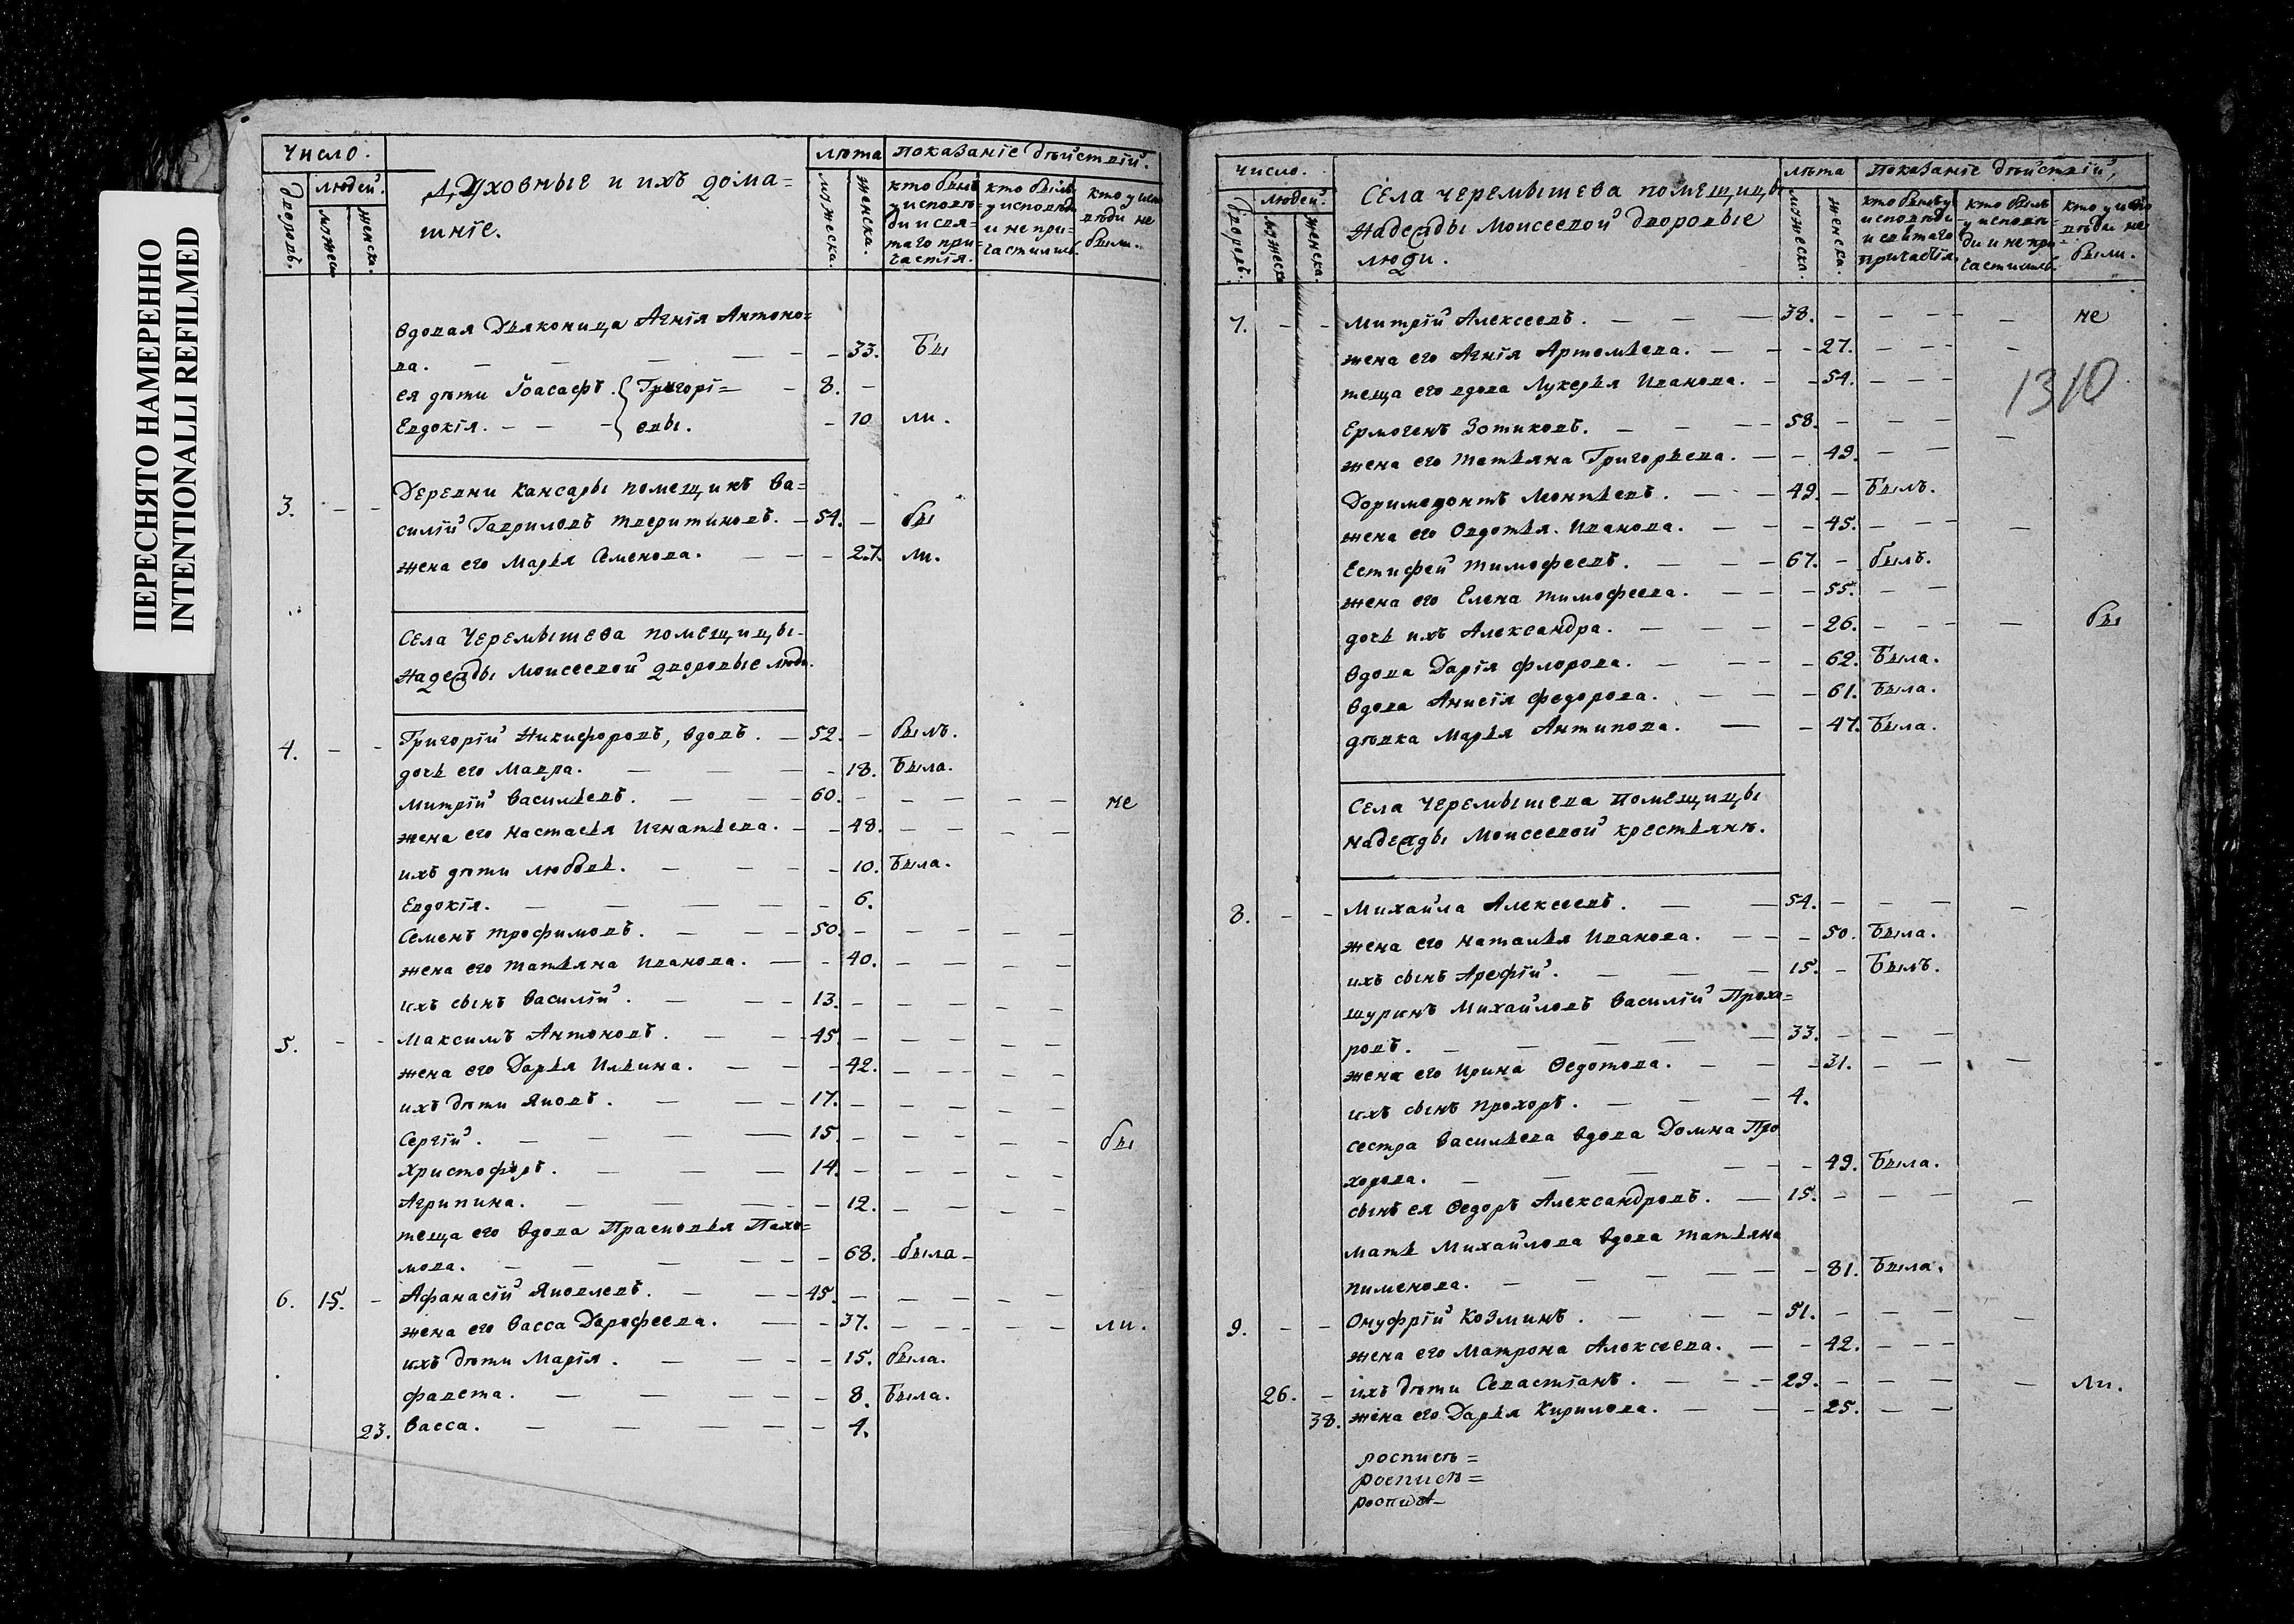 ПЕРЕСНЯТО НАМЕРЕННО
INTENTIONALLI REFILMED
Число.
людей.
Дворовъ.
мужеск.
женска.
Духовныe и ихъ дома=
шніе.
лѣта
мужеска.
женска.
показаніе дѣйствій.
кто былъ у исповѣди и святаго причастія.
кто былъ у исповѣди и не причастилсь.
кто у исповѣди не были.
вдовая Дьяконица Агнія Антоно=
ва. — — — — — 33. Бы
ея дѣти Іоасафъ. Григорі= — 8. —
Евдокія. — — — евы. — 10 ли.
3. — — Деревни Кансары помещикъ Ва=
силій Гавриловъ Тверитиновъ. — 54. — бы
жена его Марья Семенова. — — — 27. ли.
Села Черемышева помещицы
Надежды Моисеевой дворовые люди.
4. — — Григорій Никифоровъ, вдовъ. — 52. — былъ.
дочь его Мавра. — — — — 18. Была.
Митрій Васильевъ. — — — 60. — — — — — не
жена его Настасья Игнатьева. — — 48. — — — —
ихъ дѣти Любовь. — — — — 10. Была.
Евдокія. — — — — — 6.
Семенъ Трофимовъ. — — — 50. — — — — —
жена его Татьяна Иванова. — — 40. — — — —
ихъ сынъ Василій. — — — 13. — — — — —
5. — — Максимъ Антоновъ. — — — 45. — — — — —
жена его Дарья Ильина. — — — 42. — — — —
ихъ дѣти Яковъ. — — — 17. — — — — —
Сергій. — — — — 15. — — — — — бы
Христофоръ. — — — 14. — — — — —
Агрипина. — — — — — 12. — — — —
теща его вдова Прасковья Пахо=
мова. — — — — — — 68. была —
6. 15. — Афанасій Яковлевъ. — — — 45. — — — — —
жена его Васса Дорофеева. — — 37. — — — — ли.
ихъ дѣти Марія. — — — — 15. была.
Фавста. — — — — — 8. Была.
23. Васса. — — — — — 4.
Число.
людей.
Дворовъ.
мужеска
женска.
Села Черемышева помещицы
Надежды Моисеевой дворовые
люди.
лѣта
мужеска.
женска.
показаніе дѣйствій,
кто былъ у исповѣди и святаго причастія.
кто былъ у исповѣди и не причастилсь.
кто у исповѣди не были.
7. — — Митрій Алексеевъ. — — — 38. — — — — — не
жена его Агнія Артемьева. — — — 27. — — — —
теща его вдова Лукерья Иванова. — — 54. — — —
1310
Ермогенъ Зотиковъ. — — — — 58. — — —
жена его Татьяна Григорьева. — — 49. — — —
Доримедонтъ Моктѣевъ. — — 49 — Былъ.
жена его Овдотья Иванова. — — — 45. — — — —
Естифей Тимофеевъ. — — — 67. — былъ.
жена его Елена Тимофеева. — — — 55. — —
дочь ихъ Александра. — — — — 26. — — — — бы
вдова Дарія Флорова. — — — — 62. Была.
вдова Анисія Федорова. — — — 61. Была.
дѣвка Марья Антипова. — — 47. Была.
Села Черемышева Помещицы
Надежды Моисеевой крестьянѣ.
8. — — Михайла Алексеевъ. — — 54. — — — —
жена его Наталья Иванова. — — — 50. Была.
ихъ сынъ Арефій. — — — 15. — Былъ.
шуринъ Михайловъ Василій Прохо=
ровъ. — — — — — 33. — — —
жена его Ирина Ѳедотова. — — — 31. — — —
ихъ сынъ Прохоръ. — — — 4.
сестра Васильева вдова Домна Про
хорова. — — — — — 49. Была.
сынъ ея Ѳедоръ Александровъ. — 15. — — — —
мать Михайлова вдова Татьяна
Пименова. — — — — — — 81. Была.
9. — — Онуфрій Козминъ. — — — 51. — — — —
жена его Матрона Алексеева. — — 42. — — —
26. — ихъ дѣти Севастіанъ. — — — 29. — — — — ли.
38. жена его Дарья Кирилова. — — — 25. — —
роспись=
роспись=